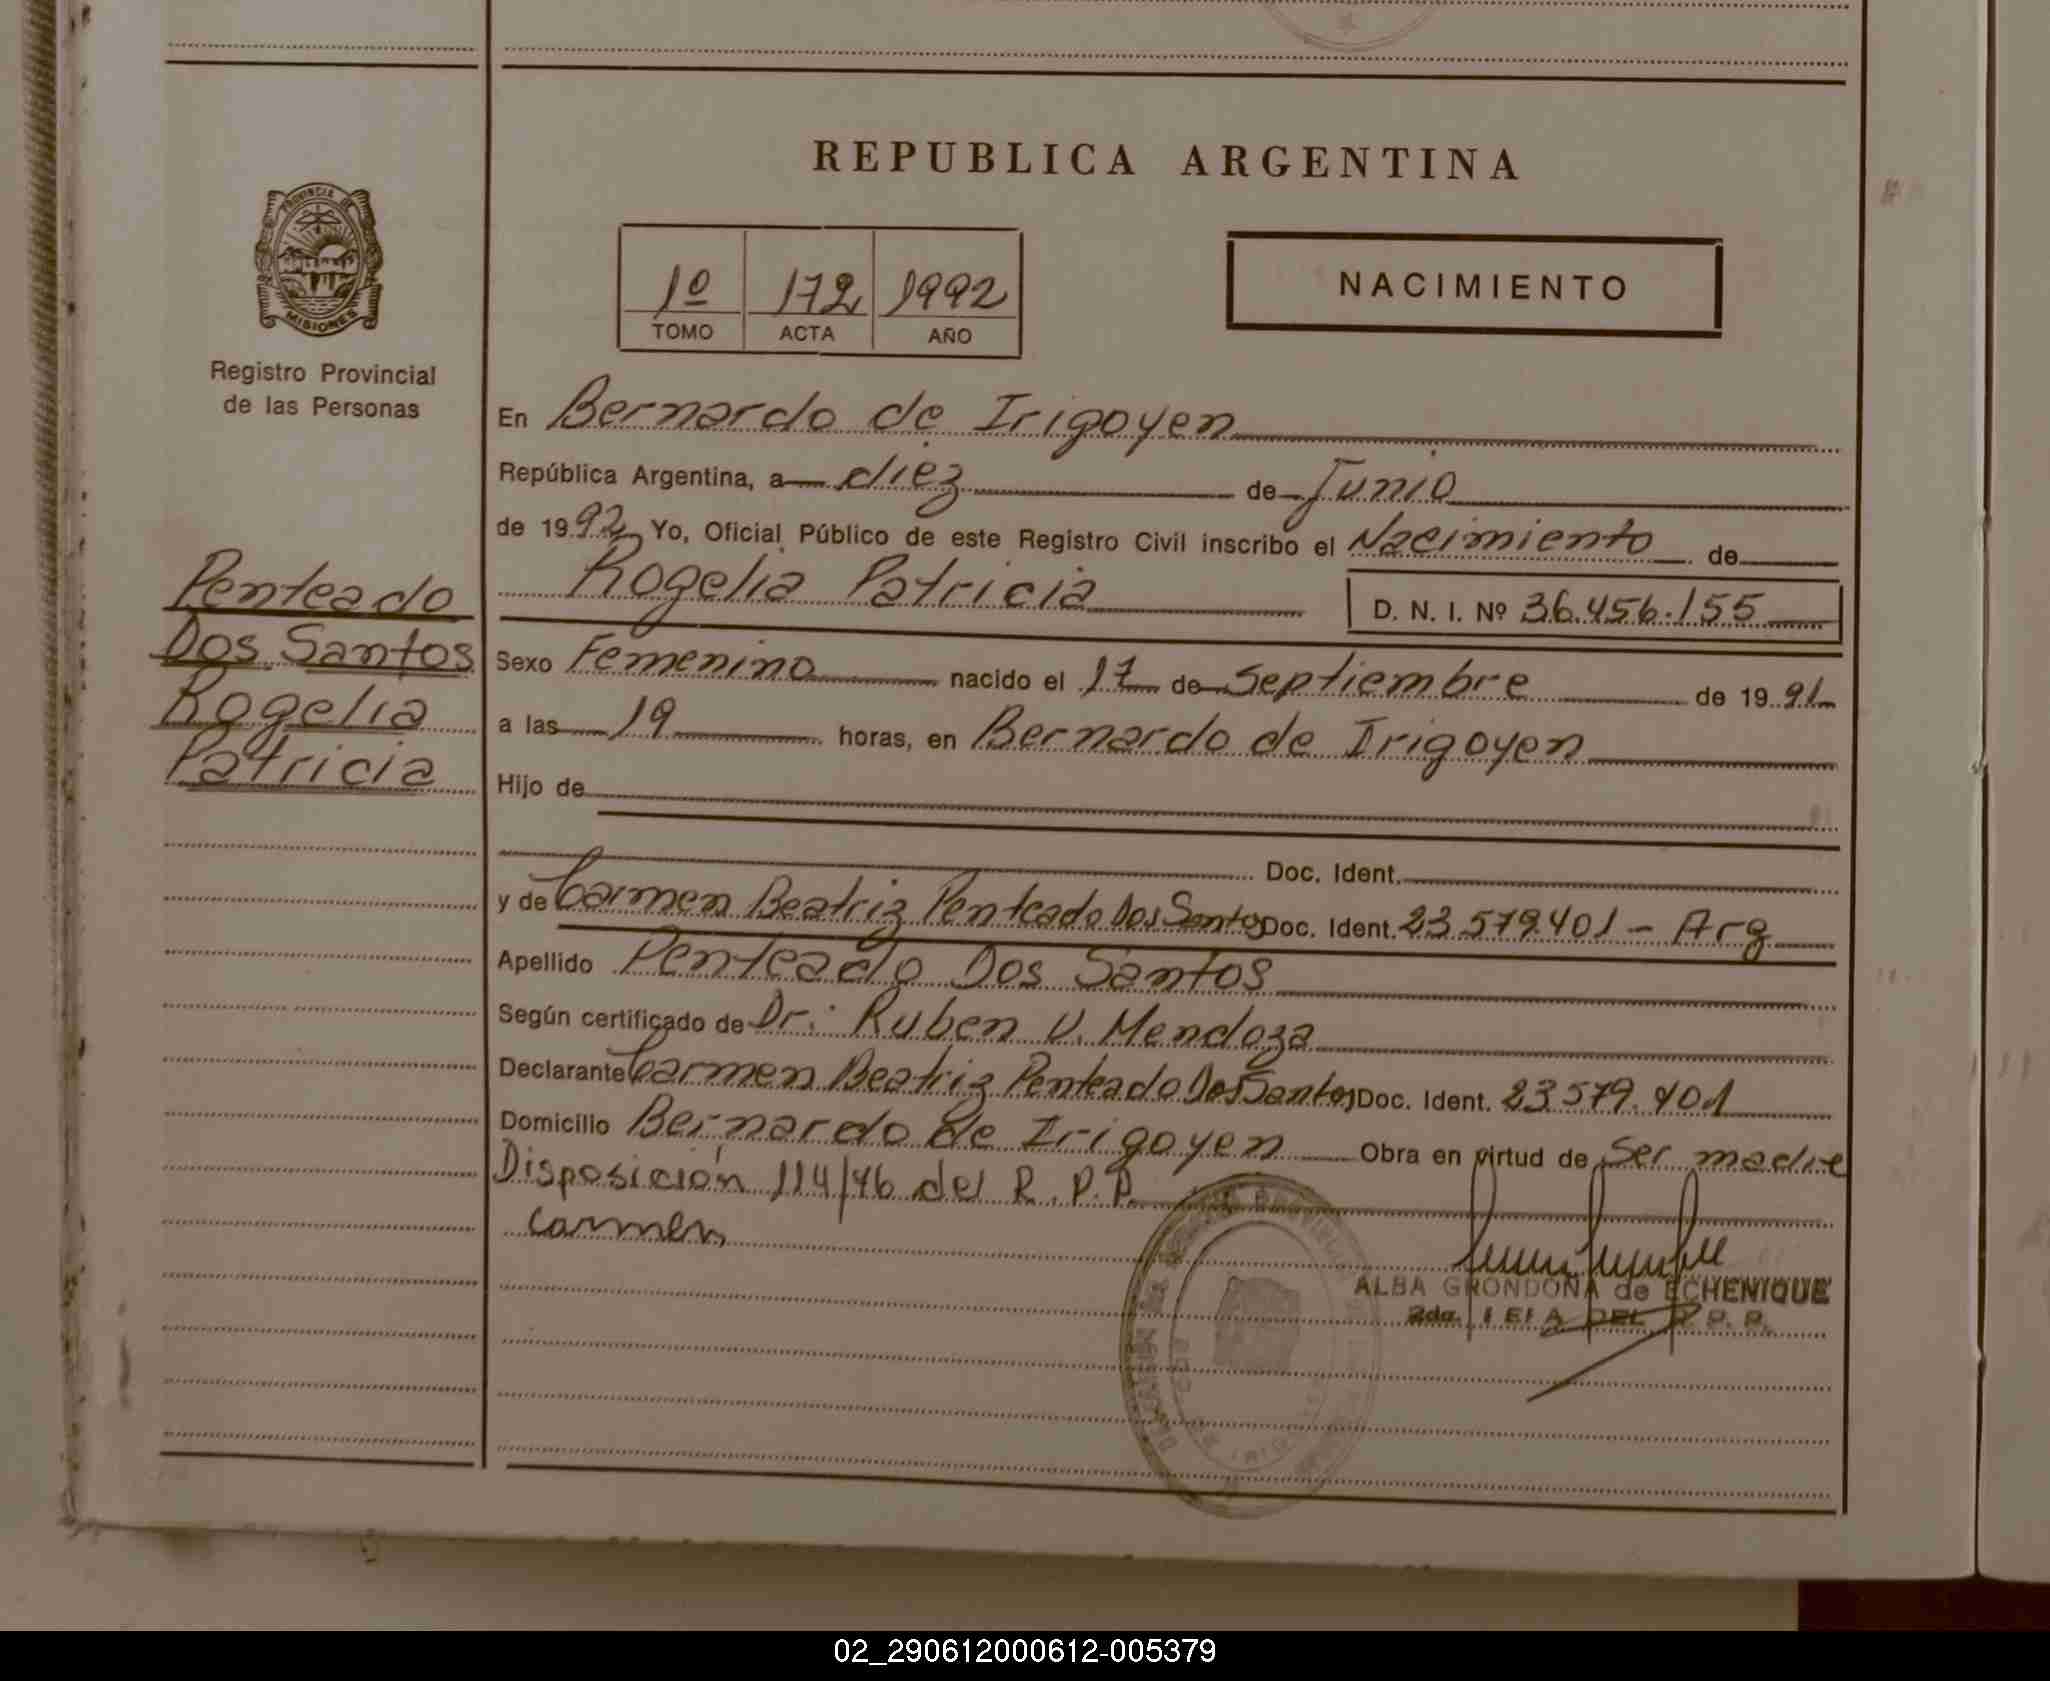 REPUBLICA ARGENTINA
PROVINCIA DE
MISIONES
Registro Provincial
de las Personas
1º 172 1992
TOMO ACTA AÑO
NACIMIENTO
Penteado
Dos Santos
Rogelia
Patricia
En Bernardo de Irigoyen
República Argentina, a diez de Junio
de 1992 Yo, Oficial Público de este Registro Civil inscribo el Nacimiento de
Rogelia Patricia D. N. I. Nº 36.456.155
Sexo Femenino nacido el 17 de Septiembre de 1991
a las 19 horas, en Bernardo de Irigoyen
Hijo de
Doc. Ident.
y de Carmen Beatriz Penteado Dos Santos Doc. Ident. 23.579.401 - Arg
Apellido Penteado Dos Santos
Según certificado de Dr. Ruben V. Mendoza
Declarante Carmen Beatriz Penteado Dos Santos Doc. Ident. 23.579.401
Domicilio Bernardo de Irigoyen Obra en virtud de Ser madre
Disposición 114/76 del R.P.P.
Carmen
ALBA GRONDONA de ECHENIQUE
2da. JEFA DEL R. P. P.
02_290612000612-005379